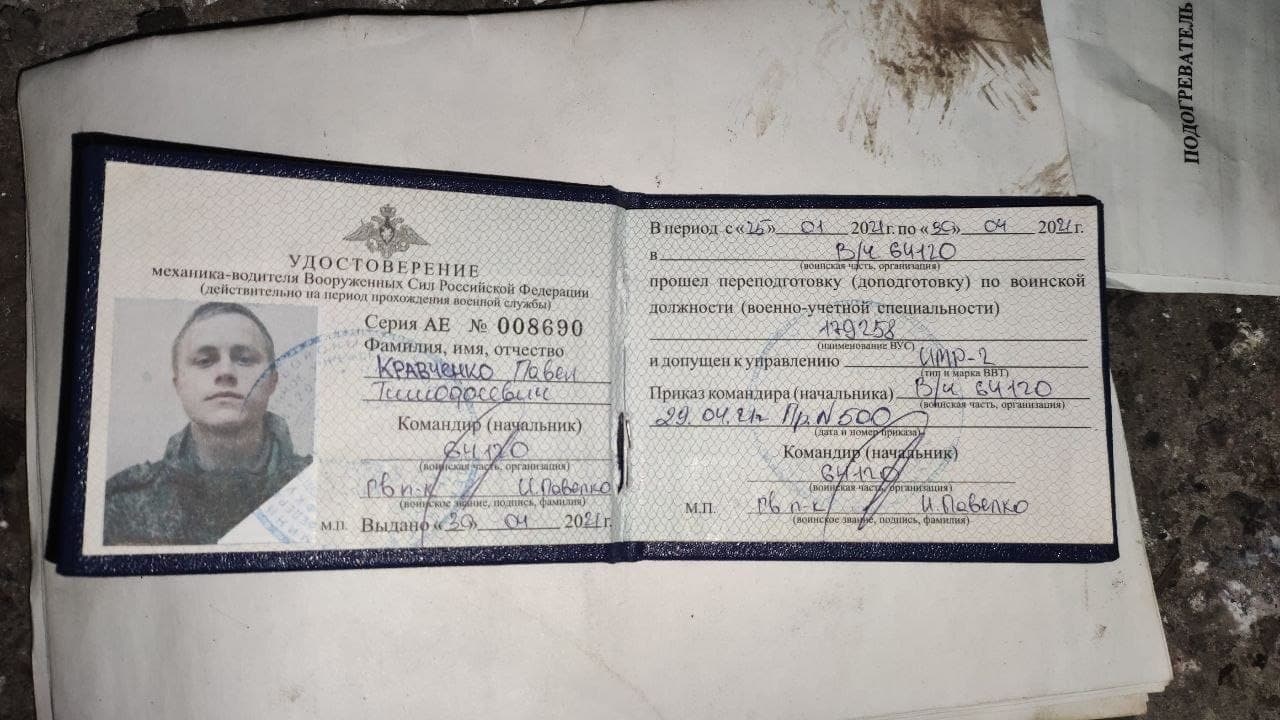 УДОСТОВЕРЕНИЕ
механика-водителя Вооруженных Сил Российской Федерации
(действительно на период прохождения военной службы)
Серия АЕ № 008690
Фамилия, имя, отчество
Кравченко Павел
Командир (начальник)
64120
(воинская часть, организация)
гв п-к И.Павелко
(воинское звание, подпись, фамилия)
М.П. Выдано «30» 04 2021г.
В период с «25» 01 2021г. по «30» 04 2021г.
в В/ч 64120
(воинская часть, организация)
прошел переподготовку (доподготовку) по воинской
должности (военно-учетной специальности)
179258
(наименование ВУС)
и допущен к управлению ИМР-2
(тип и марка ВВТ)
Приказ командира (начальника) В/ч 64120
(воинская часть, организация)
29.04.21г Пр.N500
(дата и номер приказа)
Командир (начальник)
64120
(воинская часть, организация)
М.П. гв п-к И.Павелко
(воинское звание, подпись, фамилия)
ПОДОГРЕВАТЕЛЬ